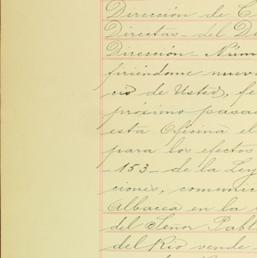 Dirección de C
Directas del Di
Dirección Núm
firiéndome nuev
cio de Usted, fe
próximo pasad
esta Oficina el
para los efectos
153 de la Ley
ciones, comunic
Albacea en la
del Señor Pabl
del Río vende